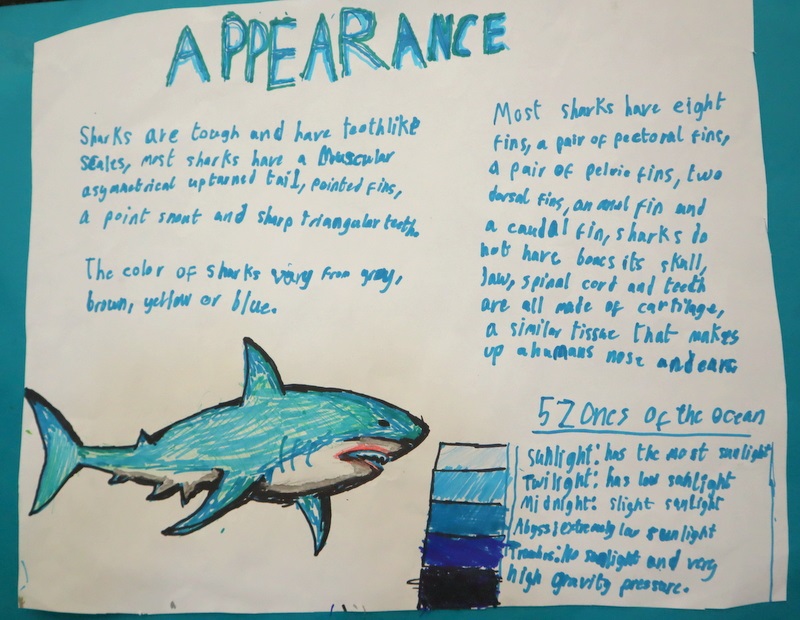 APPEARANCE
Sharks are tough and have toothlike
scales, most sharks have a Muscular
asymmetrical upturned tail, pointed fins,
a point snout and sharp triangular teeth.
The color of sharks vary from gray,
brown, yellow or blue.
Most sharks have eight
fins, a pair of pectoral fins,
a pair of pelvic fins, two
dorsal fins, an anal fin and
a caudal fin, sharks do
not have bones its skull,
Jaw, spinal cord and teeth
are all made of cartilage,
a similar tissue that makes
up a humans nose and ears
5 Zones of the ocean
Sunlight: has the most sunlight
Twilight: has low sunlight
Midnight: slight sunlight
Abyss: extremely low sunlight
No sunlight and very
high gravity pressure.